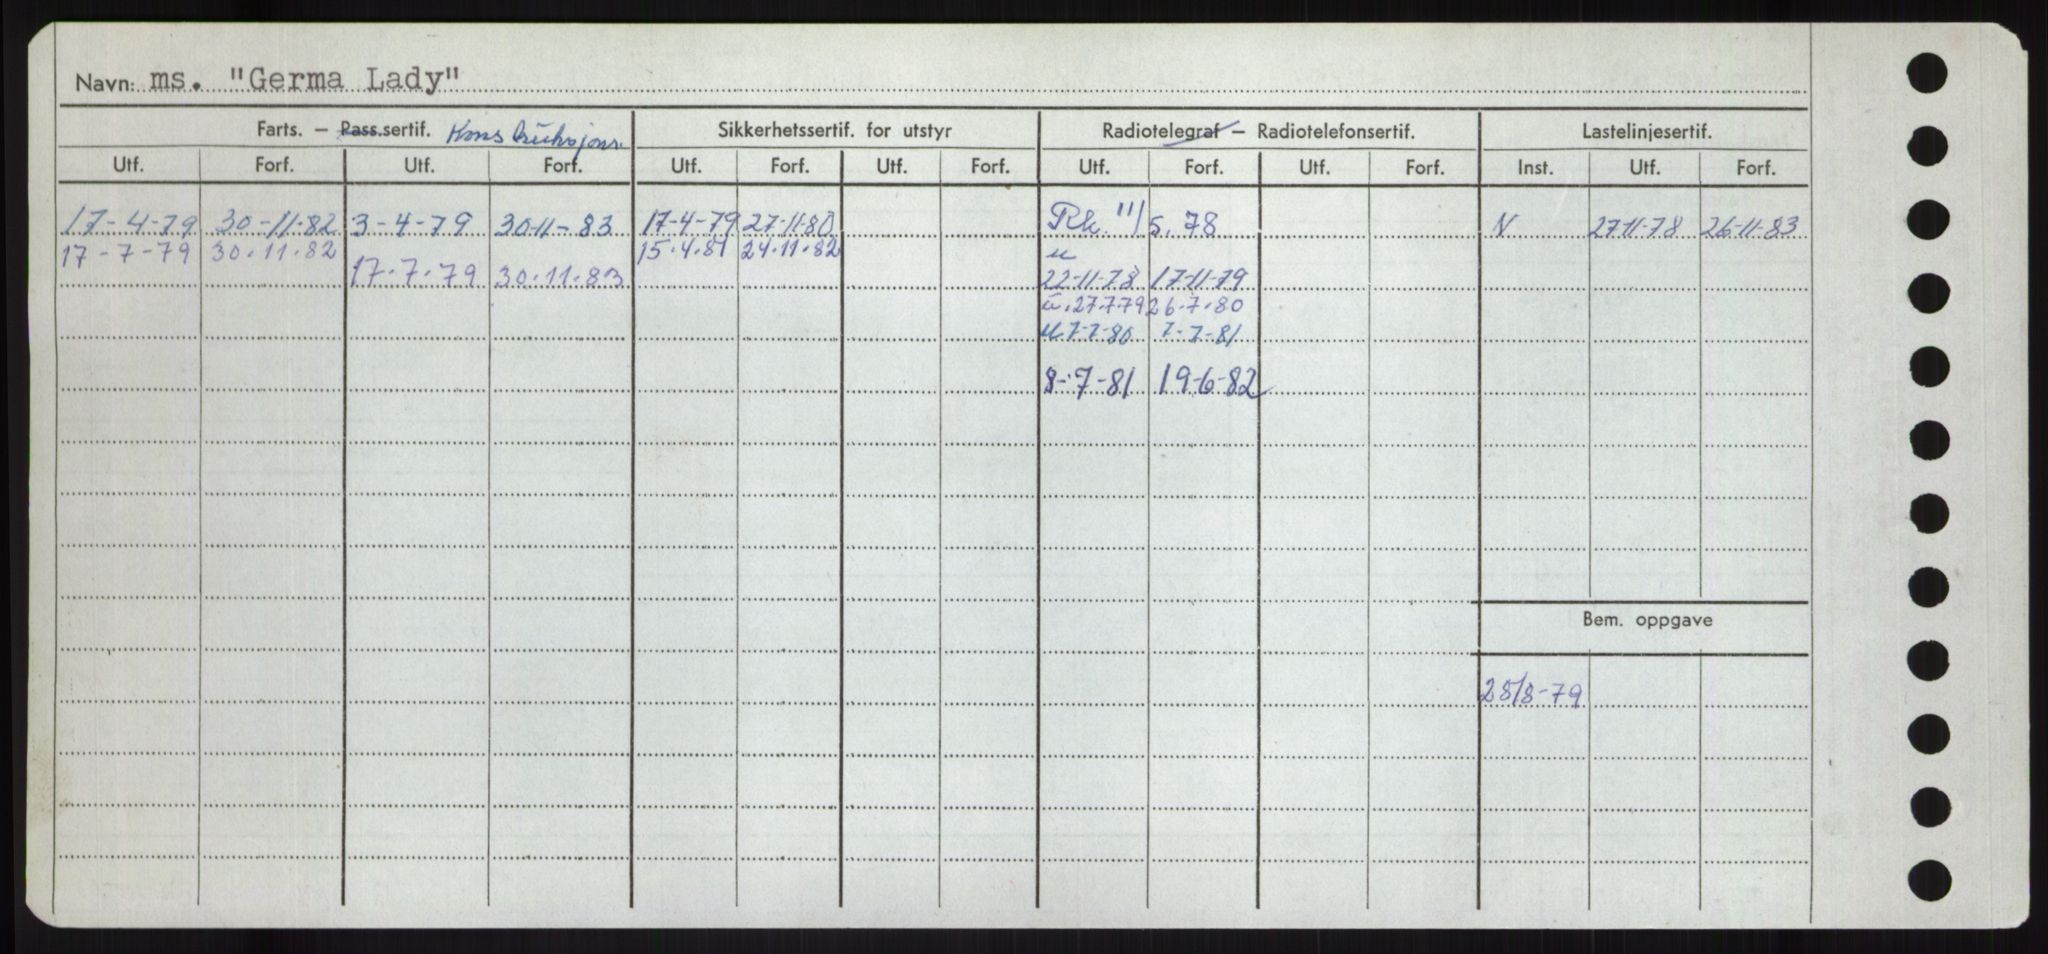 Navn: ms. "Germa Lady"
Farts. – Pass.sertif. Konstruksjons. Sikkerhetssertif. for utstyr Radiotelegraf – Radiotelefonsertif. Lastelinjesertif.
Utf. Forf. Utf. Forf. Utf. Forf. Utf. Forf. Utf. Forf. Utf. Forf. Inst. Utf. Forf.
17-4-79 30-11-82 3-4-79 30-11-83 17-4-79 27-11-80 Rk. 11/5.78 N 27-11-78 26-11-83
17-7-79 30.11.82 15.4.81 24.11.82 u
17.7.79 30.11.83 22-11-78 17-11-79
u.27.7.79 26.7.80
u 7-7-80 7-7-81
8-7-81 19-6-82
Bem. oppgave
28/8-79